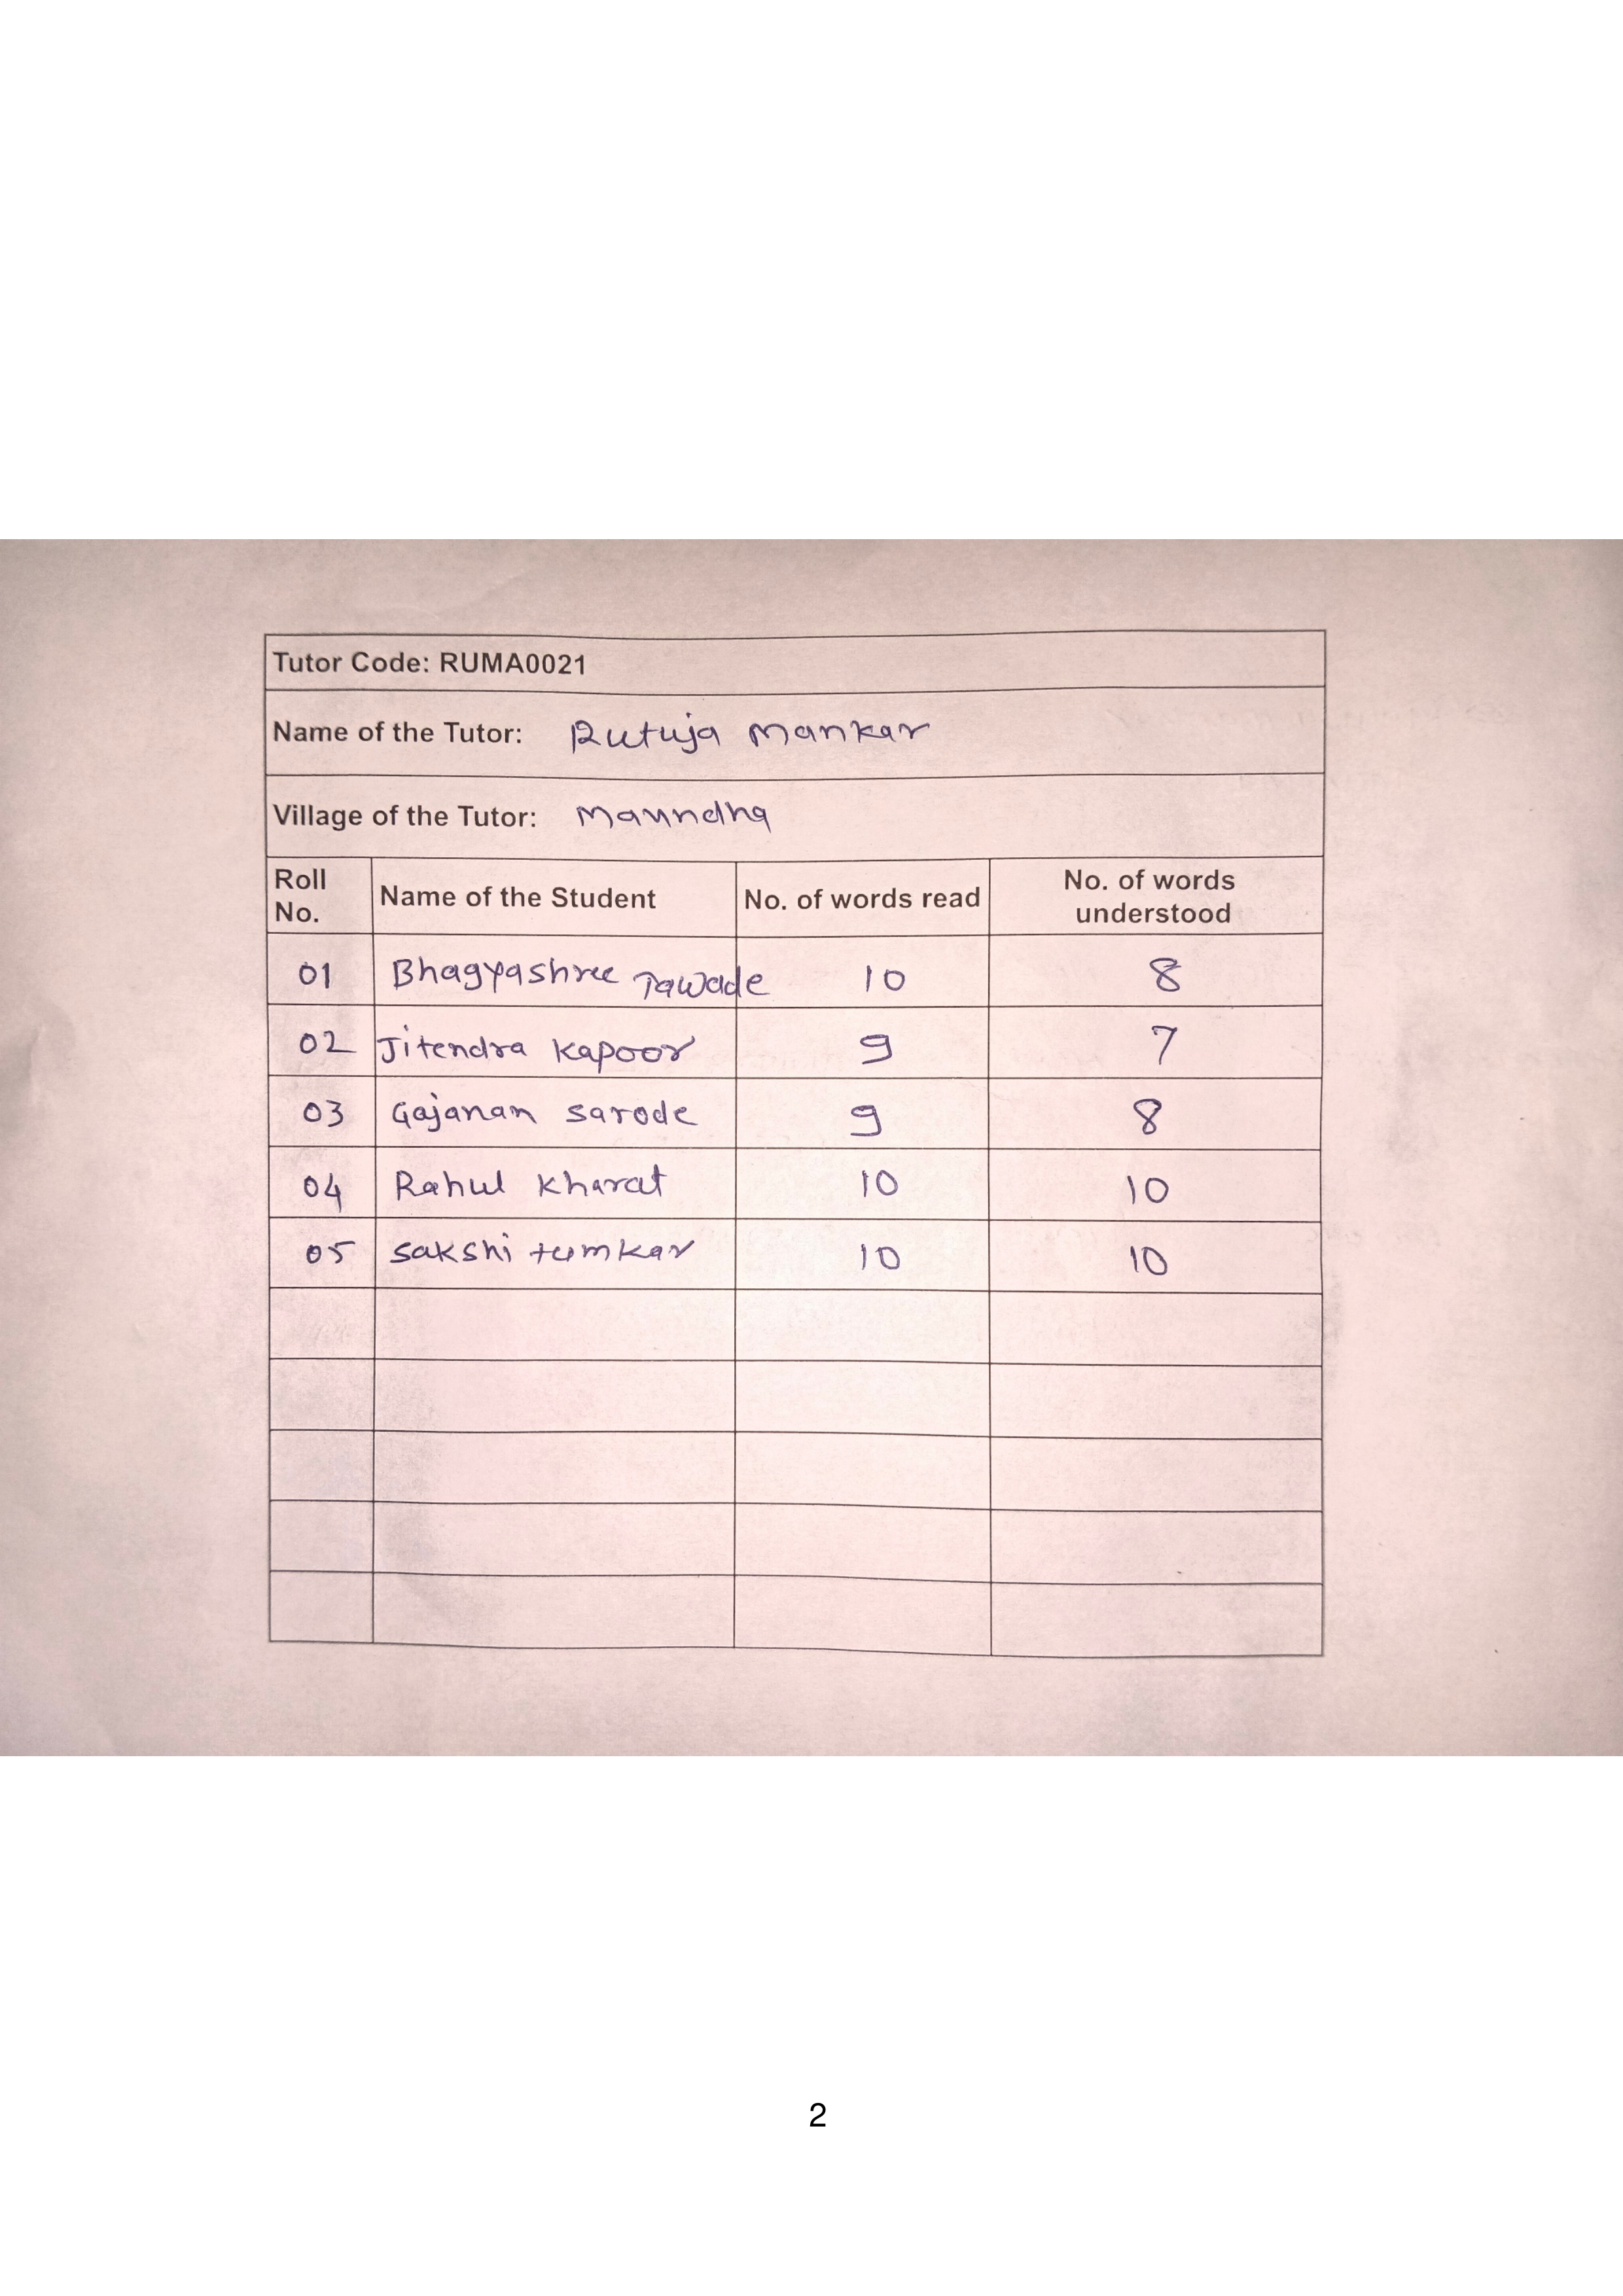 Tutor Code: RUMA0021
Name of the Tutor: Rutuja Mankar
Village of the Tutor: Maunndha
Roll No. Name of the Student No. of words read No. of words understood
01 Bhagyashree Tawade 10 8
02 Jitendra Kapoor 9 7
03 Gajanan Sarode 9 8
04 Rahul Kharat 10 10
05 Sakshi tumkar 10 10
2